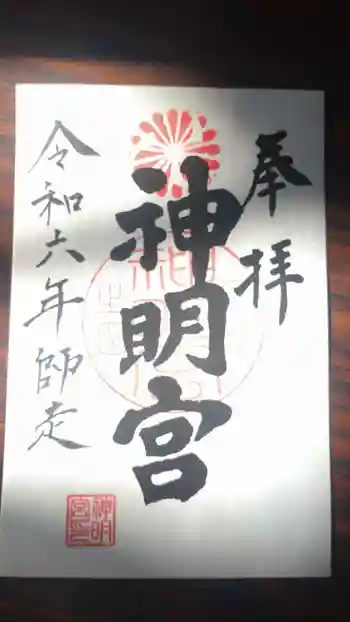 奉拝
神明宮
令和六年師走
神明
宮印